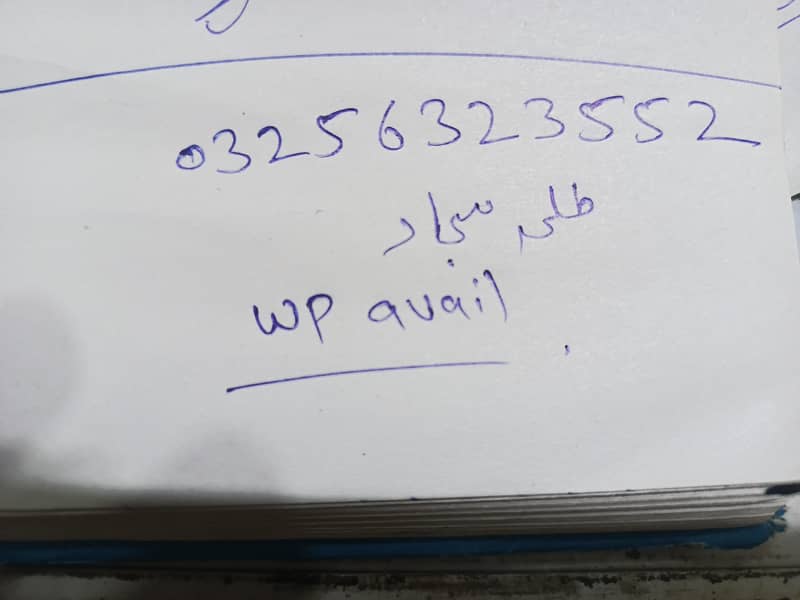 03256323552
سجاد
WP avail